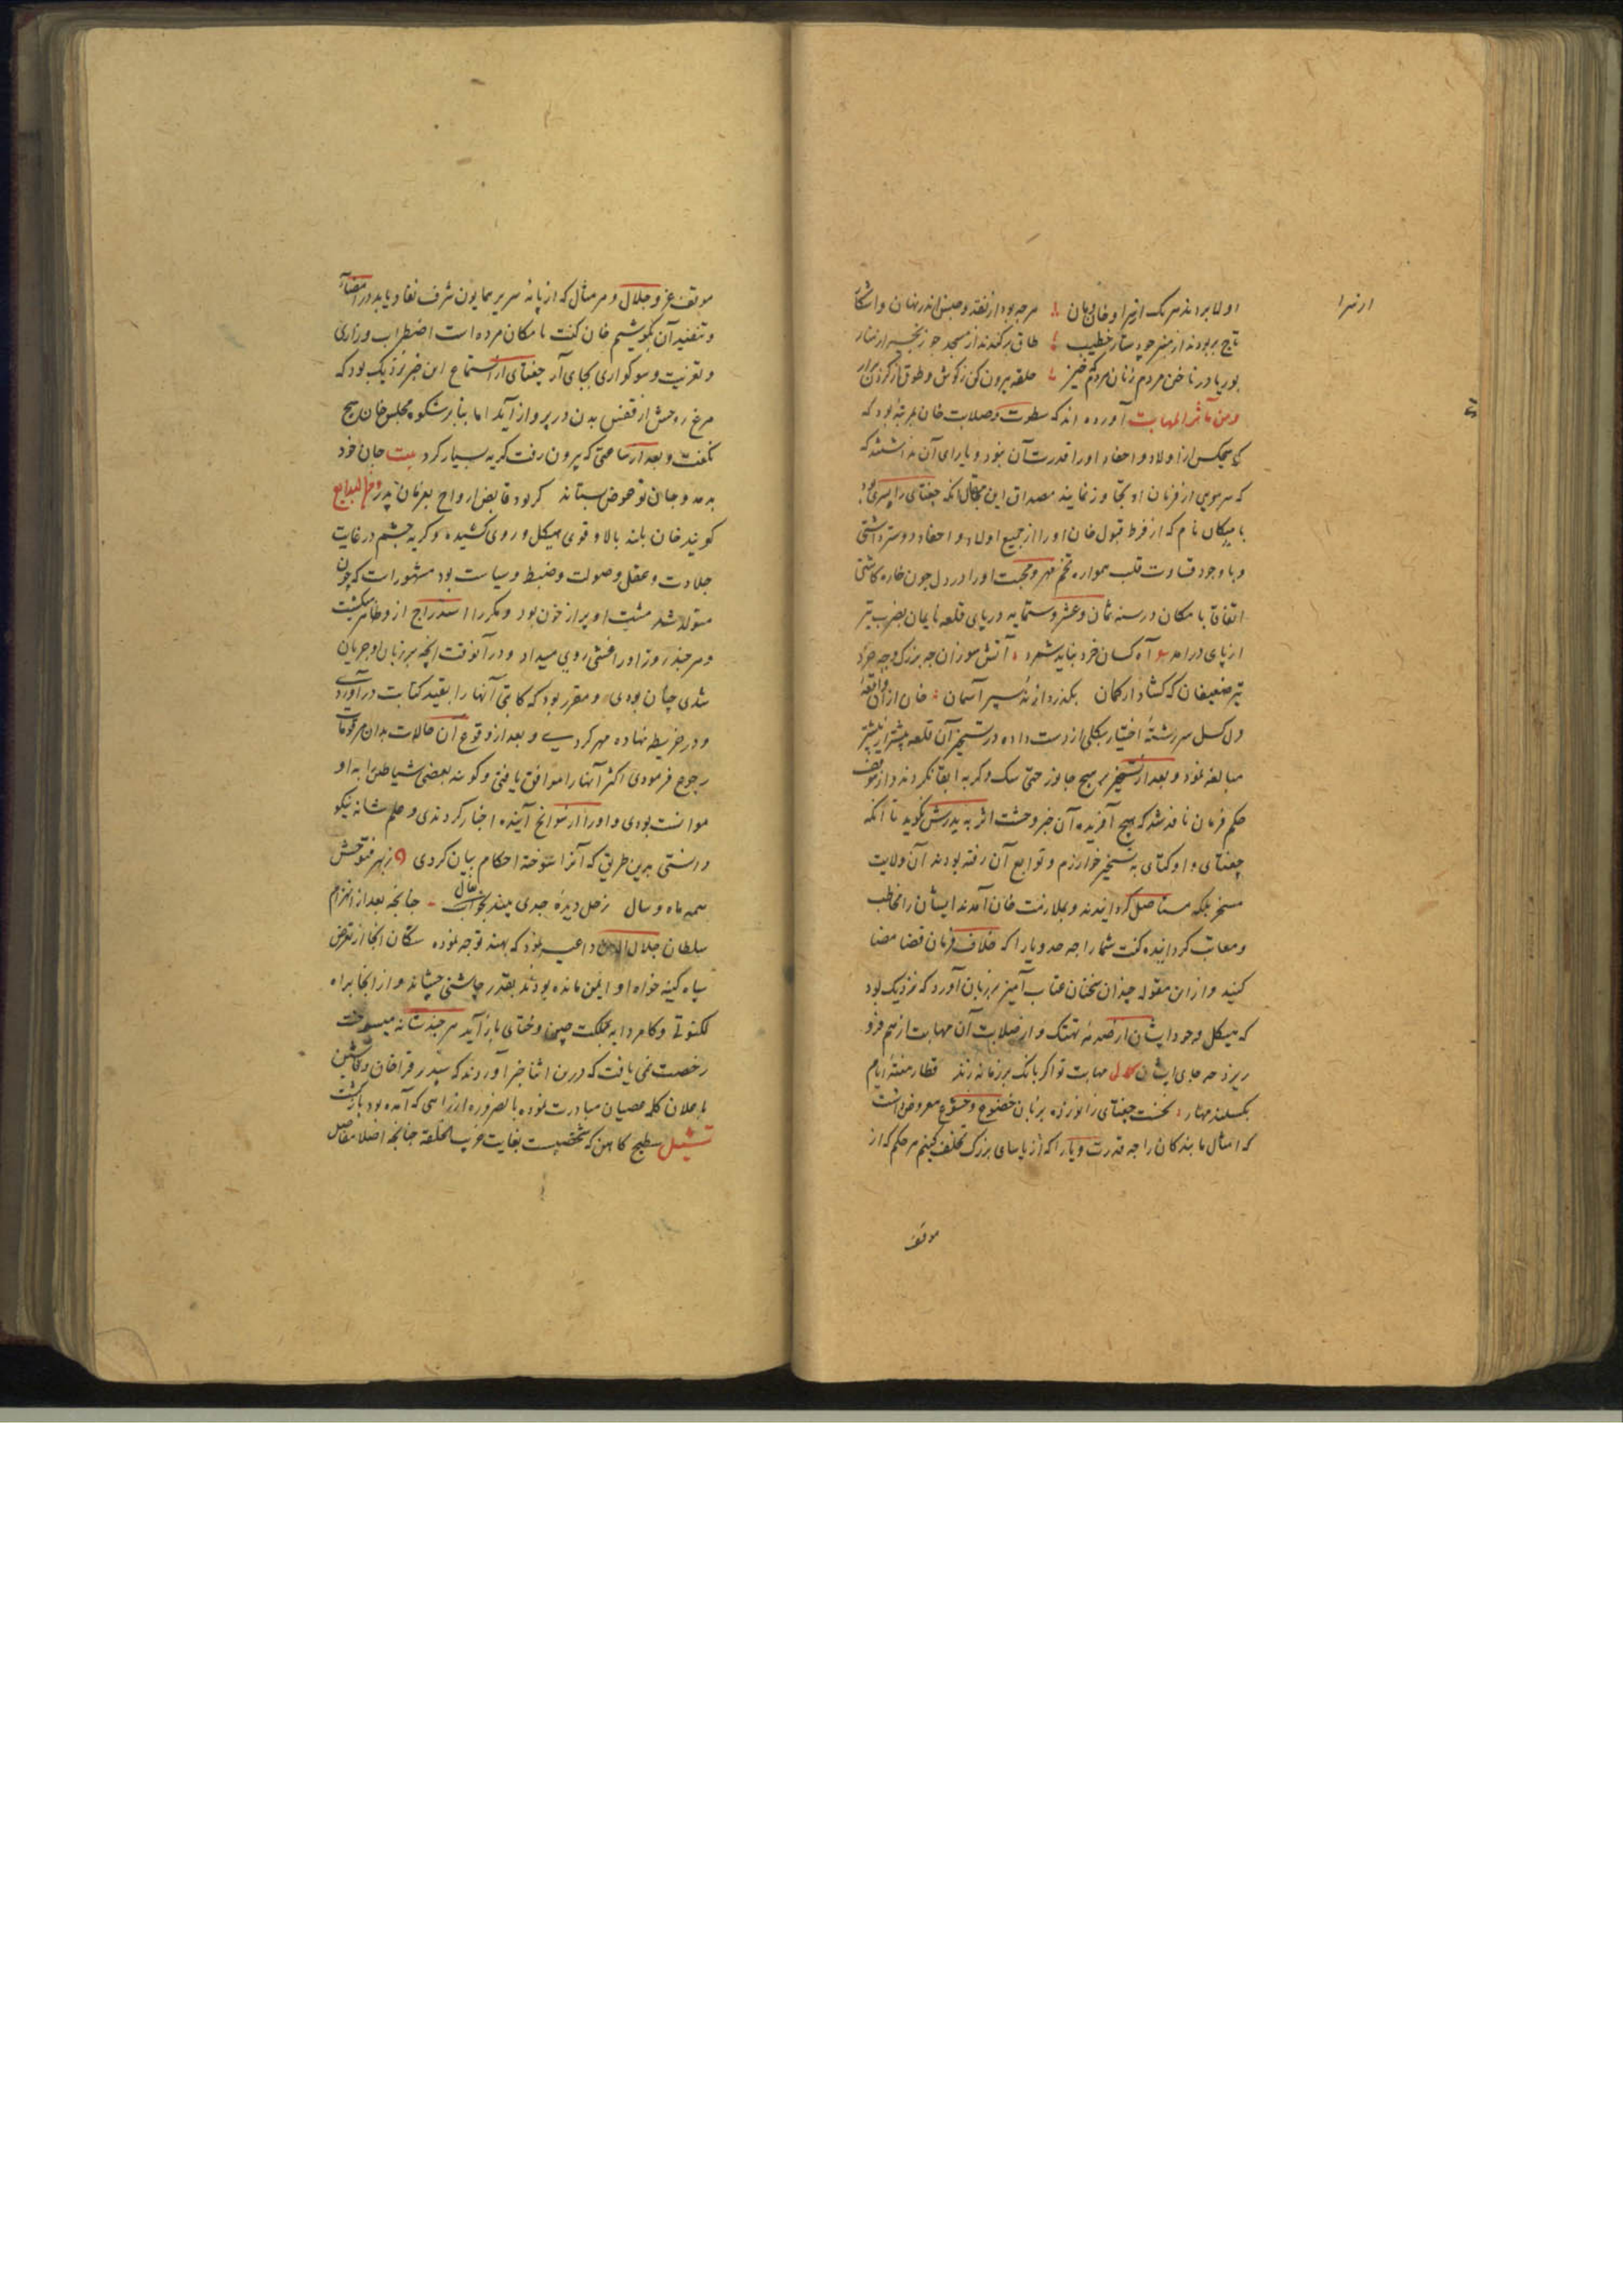 اولا بردند هر یک از سرا و خان و مان هرچه بود از نقد و جنس اندر نهان و آشکار
تاج بربودند از منبر چو دستار خطیب طاق برکندند از مسجد چو زنجیر از منار
بوریا در ناخن مردم زنان مردم خیز حلقه بیرون کن ز گوش و طوق از گردن برار
ومن مآثر المهابت آورده اند که سطوت و صلابت خان بمرتبهٔ بود که
هیچکس از اولاد و احفاد او را قدرت آن نبود و یارای آن نداشتند که
که سر مویی از فرمان او تجاوز نمایند مصداق این مقال آنکه جغتای را پسری بود
بامیکان نام که از فرط قبول خان او را از جمیع اولاد و احفاد دوستر داشتی
و با وجود قساوت قلب همواره تخم مهر و محبت او را در دل چون خاره کاشتی
اتفاقا بامکان در سنه ثمان و عشر و ستمایه در پای قلعه بامیان بضرب تیر
از پای درامد آه کسان خرد نباید شمرد آتش سوزان چه بزرگ و چه خرد
تیر ضعیفان که گشاد از کمان بگذرد از نه سپر آسمان خان از آن واقعهٔ
دل گسل سررشتهٔ اختیار بکلی از دست داده در تسخیر آن قلعه بیشتر از پیشتر
مبالغه نمود و بعد از تسخیر بر هیچ جانور حتی سگ و گربه ابقا نکردند و از موقف
حکم فرمان نافذ شد که هیچ آفریده آن خبر وحشت اثر به پدرش نگوید تا آنکه
جغتای و اوکتای به تسخیر خوارزم و توابع آن رفته بودند آن ولایت
مسخر بلکه مستاصل گردانیدند و بملازمت خان آمدند ایشان را مخاطب
و معاتب گردانیده گفت شما را چه حد و یارا که خلاف فرمان قضا مضا
کنید و از این مقوله چندان سخنان عتاب آمیز بر زبان آورد که نزدیک بود
که هیکل وجود ایشان از صدمهٔ تهتک و از صلابت آن مهابت از هم فرو
ریزد چه جای ایشان مهابت تو اگر بانگ بر زمانه زند قطار هفتهٔ ایام
بگسلد مهار نخست جغتای زانو زده بزبان خضوع و خشوع معروض داشت
که امثال ما بندگان را چه قدرت و یارا که از یاسای بزرگ تخلف کنیم هر حکم که از
موقف
موقف عز و جلال و هر مثال که از پایهٔ سریر همایون شرف نفاذ یابد در امضاء
و تنفیذ آن بکوشیم خان گفت بامکان مرده است اضطراب و زاری
و تعزیت و سوگواری بجای آر جغتای از استماع این خبر نزدیک بود که
مرغ روحش از قفس بدن در پرواز آید اما بنابر شکوه مجلس خان هیچ
نگفت و بعد از ساعتی که بیرون رفت گریه بسیار کرد بیت جان خود
بدهد و جان تو عوض بستاند گر بود قابض ارواح بفرمان پدر ومن البدایع
گویند خان بلند بالا و قوی هیکل و روی کشیده و گربه چشم در غایت
جلادت و عقل و صولت و ضبط و سیاست بود مشهور است که چون
متولد شد مشت او پر از خون بود و مکررا استدراج از وظاهر میگشت
و هر چند روز او را غشی روی میداد و در آن وقت آنچه بر زبان او جریان
شدی چنان بودی و مقرر بود که کاتبی آنها را بقید کتابت درآوردی
و در خریطه نهاده مهر کردی و بعد از وقوع آن حالات بدان مرقومات
رجوع فرمودی اکثر آنها را موافق یافتی و گویند بعضی شیاطین را به او
موانست بودی و او را از سوانح آینده اخبار کردندی و علم شانه نیکو
دانستی بدین طریق که آنرا سوخته احکام بیان کردی ز بهر فتوحش
همه ماه و سال زحل دیده جدی بیند بخواب فال چنانچه بعد از انهزام
سلطان جلال الدین داعیه نمود که بهند توجه نموده سکان آنجا از تعرض
سپاه کینه خواه او ایمن مانده بودند بقدر چاشنی چشاند و از آنجا براه
لکنوتی و کامرد به مملکت چین و ختای بازآید هر چند شانه میسوخت
رخصت نمی یافت که درین اثنا خبر آوردند که شیدرقو خان و قاشین
باعلان کلمهٔ عصیان مبادرت نموده بالضروره از راهی که آمده بود بازگشت
تمثیل سطیح کاهن که شخصیست بغایت غریب الخلقه چنانچه اصلا مفاصل